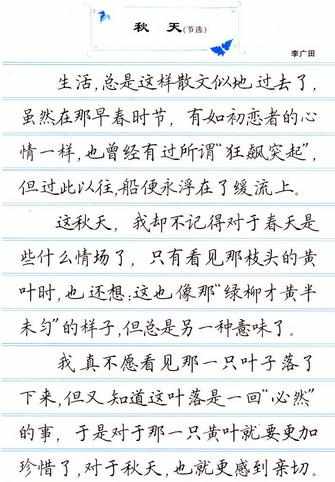 秋 天(节选)
李广田
生活,总是这样散文似地过去了,
虽然在那早春时节,有如初恋者的心
情一样,也曾经有过所谓“狂飙突起”,
但过此以往,船便永浮在了缓流上。
这秋天,我却不记得对于春天是
些什么情场了,只有看见那枝头的黄
叶时,也还想:这也像那“绿柳才黄半
未匀”的样子,但总是另一种意味了。
我真不愿看见那一只叶子落了
下来,但又知道这叶落是一回“必然”
的事,于是对于那一只黄叶就要更加
珍惜了,对于秋天,也就更感到亲切。